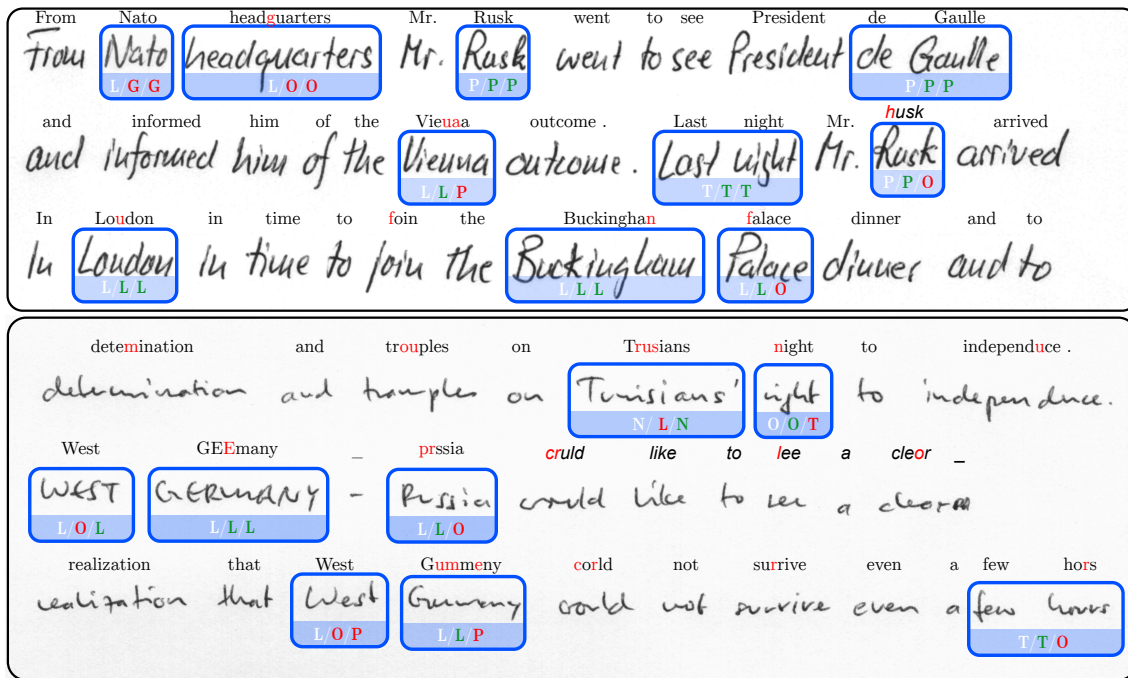 From Nato headguarters Mr. Rusk went to see President de Gaulle
From Nato headquarters Mr. Rusk went to see President de Gaulle
L/G/G L/O/O P/P/P P/P/P
husk
and informed him of the Vieuaa outcome . Last night Mr. arrived
and informed him of the Vienna outcome. Last night Mr. Rusk arrived
L/L/P T/T/T P/P/O
In Loudon in time to foin the Buckinghan falace dinner and to
In London in time to join the Buckingham Palace dinner and to
L/L/L L/L/L L/L/O
detemination and trouples on Trusians night to independuce .
determination and tramples on Tunisians' right to independence.
N/L/N O/O/T
West GEEmany _ prssia cruld like to lee a cleor _
WEST GERMANY - Russia would like to see a clear
L/O/L L/L/L L/L/O
realization that West Gummeny corld not surrive even a few hors
realization that West Germany could not survive even a few hours
L/O/P L/L/P T/T/O